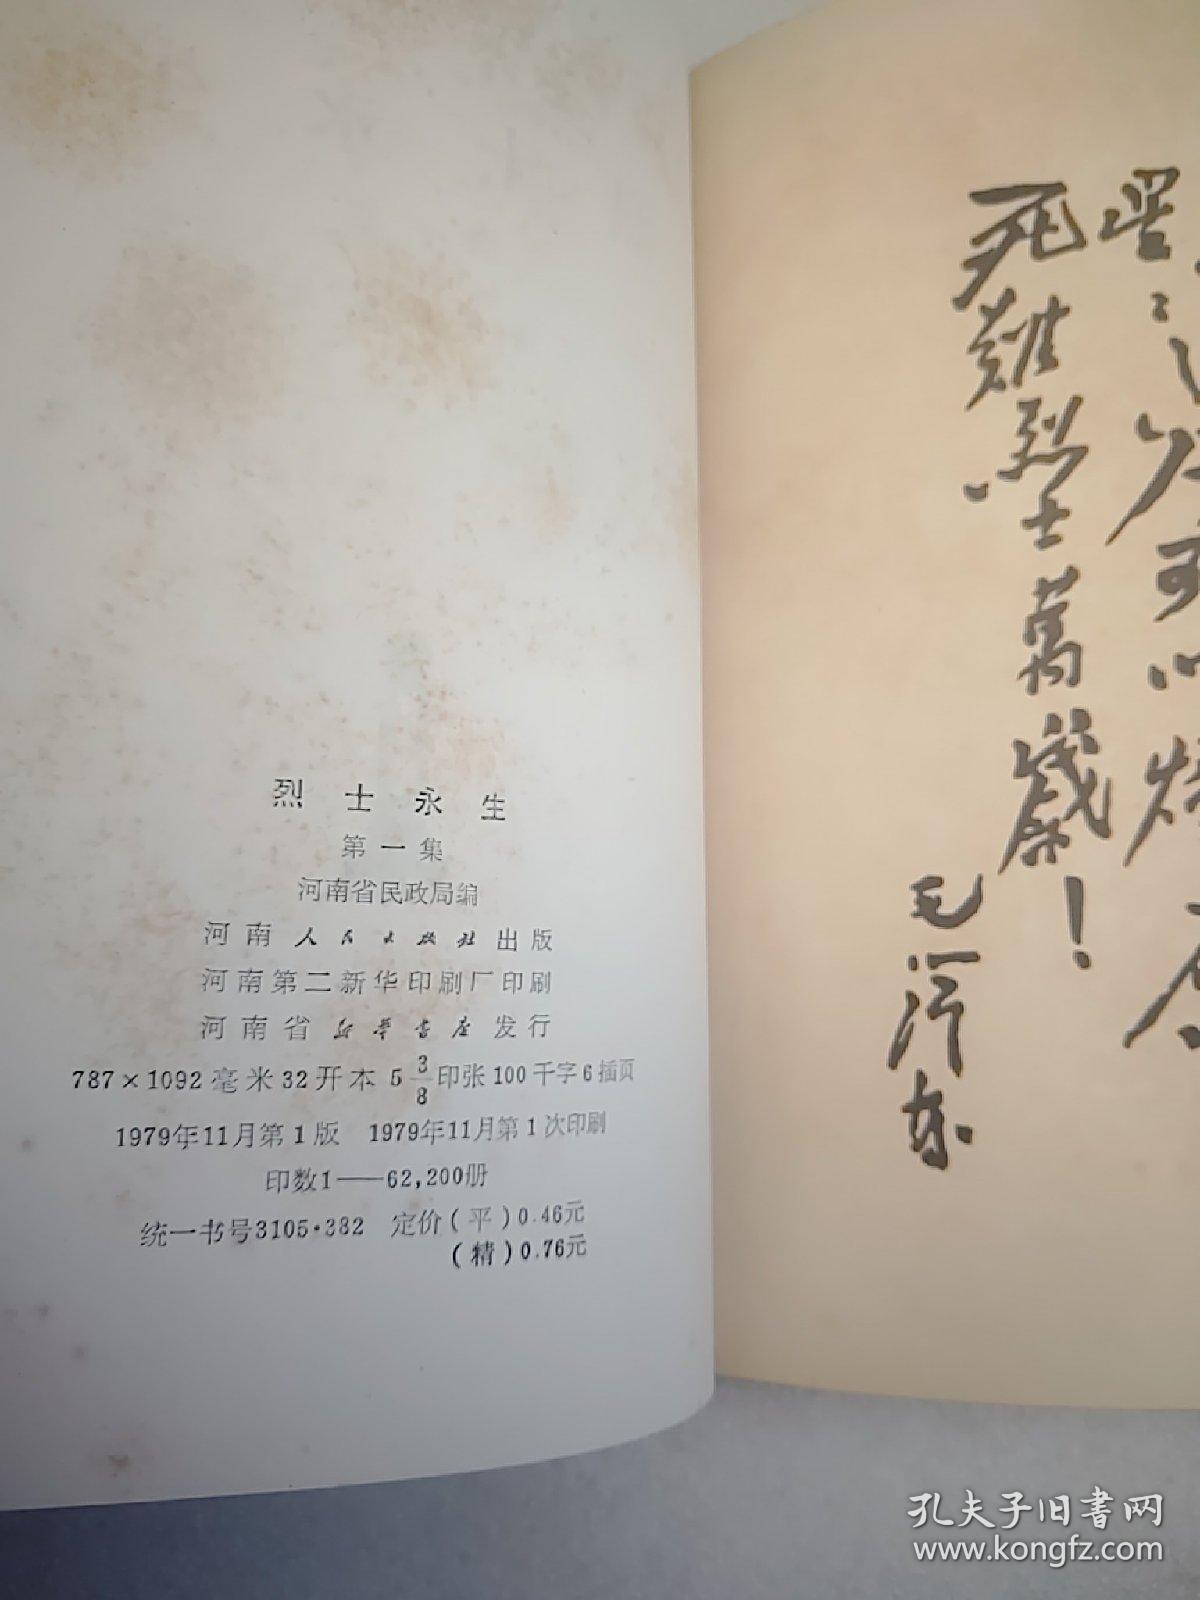 烈士永生
第一集
河南省民政局编
河南人民出版社出版
河南第二新华印刷厂印刷
河南省新华书店发行
787×1092毫米32开本 5 3/8 印张 100千字 6插页
1979年11月第1版 1979年11月第1次印刷
印数1——62,200册
统一书号3105·382 定价(平)0.46元
(精)0.76元
星星之火可以燎原
死難烈士萬歲!
毛泽东
孔夫子旧书网
www.kongfz.com